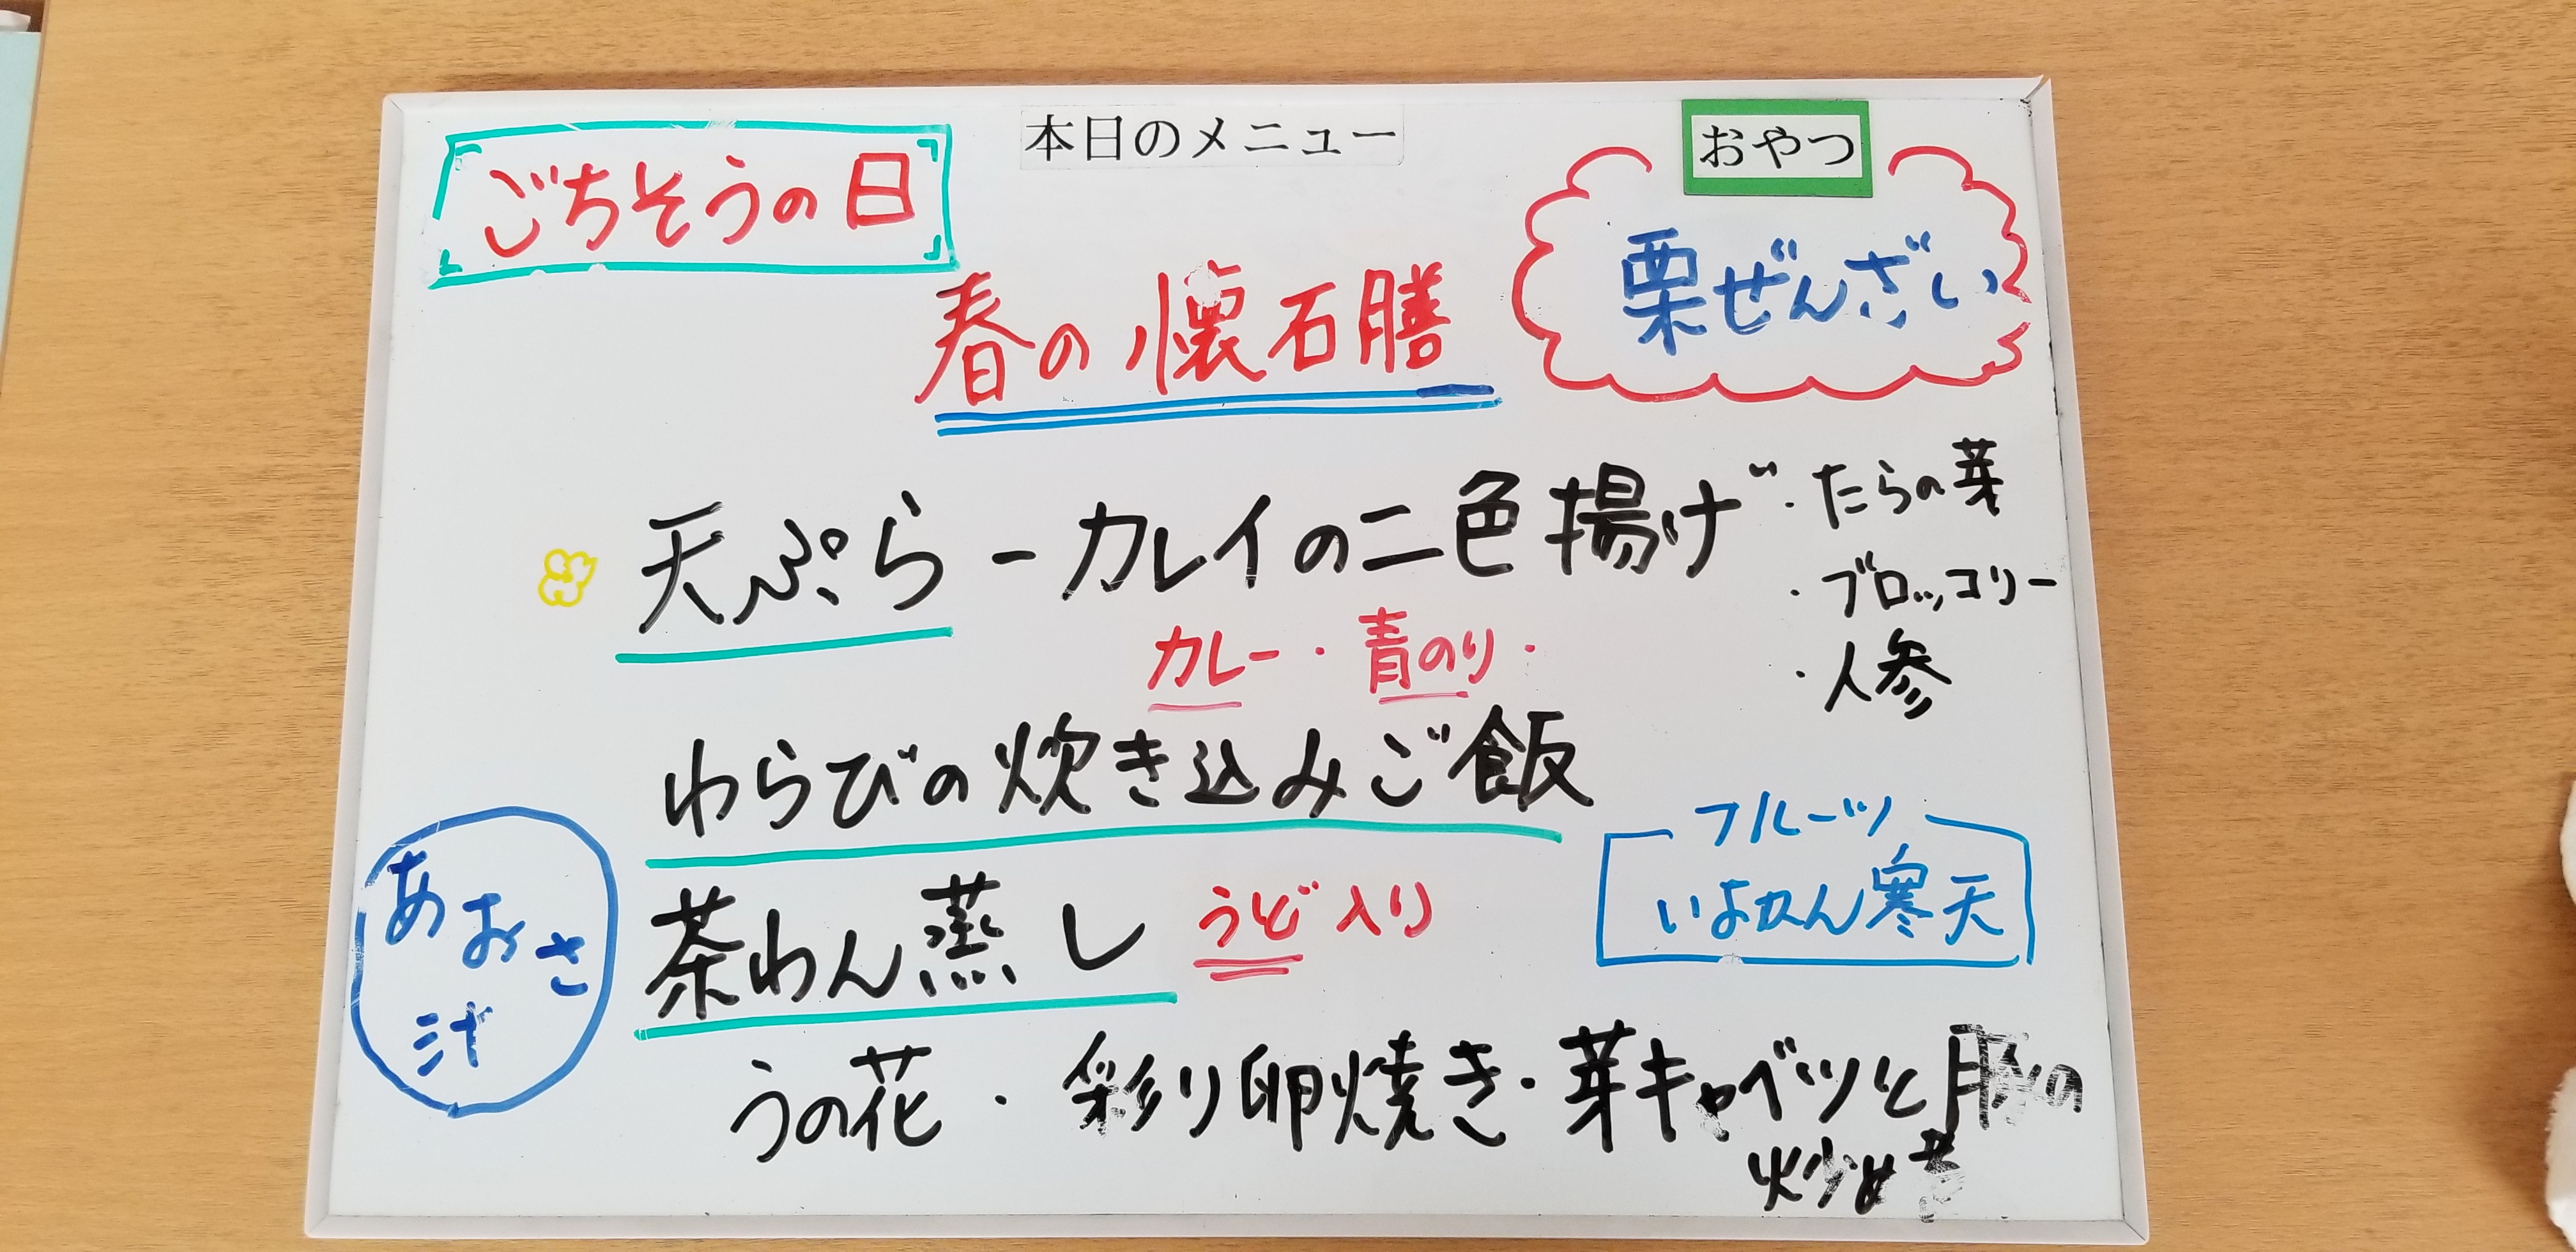 本日のメニュー
ごちそうの日
おやつ
栗ぜんざい
春の懐石膳
天ぷら - カレイの二色揚げ
カレー・青のり・
・たらの芽
・ブロッコリー
・人参
わらびの炊き込みご飯
茶わん蒸し うど入り
フルーツ
いよかん寒天
あおさ
汁
うの花・彩り卵焼き・芽キャベツと豚の
炒め煮